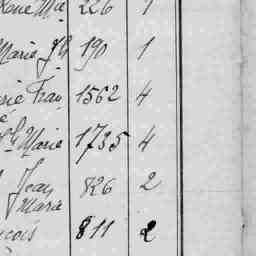 Mie 226 1
Marie Jh 190 1
rie Fran 1562 4
Marie 1735 4
Jean 826 2
Marie
çois 811 2